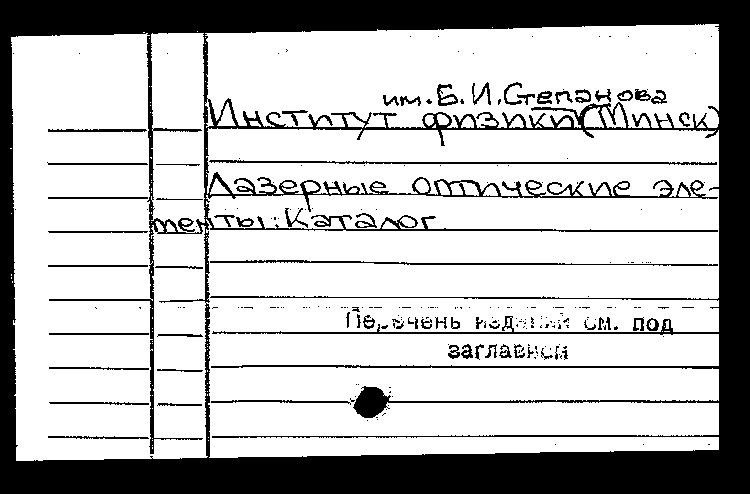 им. Б. И. Степанова
Институт физики (Минск)
Лазерные оптические эле-
менты: Каталог
Перечень изданий см. под
заглавием